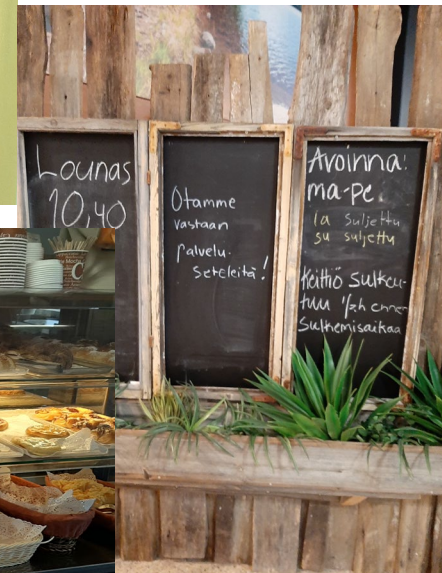 Lounas
10,40
Otamme
vastaan
palvelu-
seteleitä!
Avoinna:
ma-pe
la suljettu
su suljettu
Keittiö sulkeu-
tuu ½h ennen
sulkemisaikaa